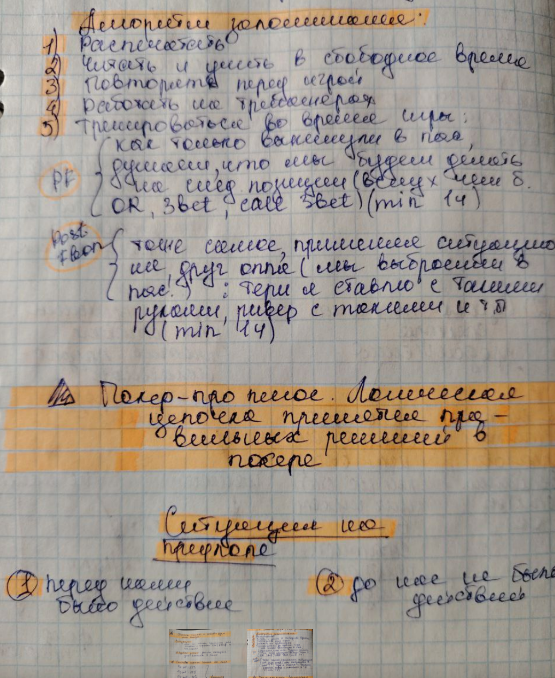 Алгоритм запоминания:
1) Распечатать
2) Читать и учить в свободное время
3) Повторять перед игрой
4) Работать на тренажерах
5) Тренироваться во время игры:
как только выкинули в пас,
думаем, что мы будем делать
PF на след позиции (
OR, 3bet, call 3bet) (min 14)
Post
Flop
тоже самое, применяя ситуацию
на друг оппа (мы выбросили в
пас) : терн я ставлю с такими
руками, ривер с такими и тд
(min 14)
Покер-про Логическая
цепочка принятия пра-
вильных решений в
покере
Ситуации на
префлопе
1 перед нами
было действие
2 до нас не было
действий